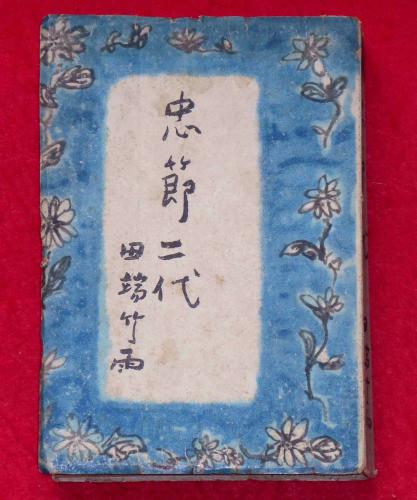 忠節二代
田端竹雨